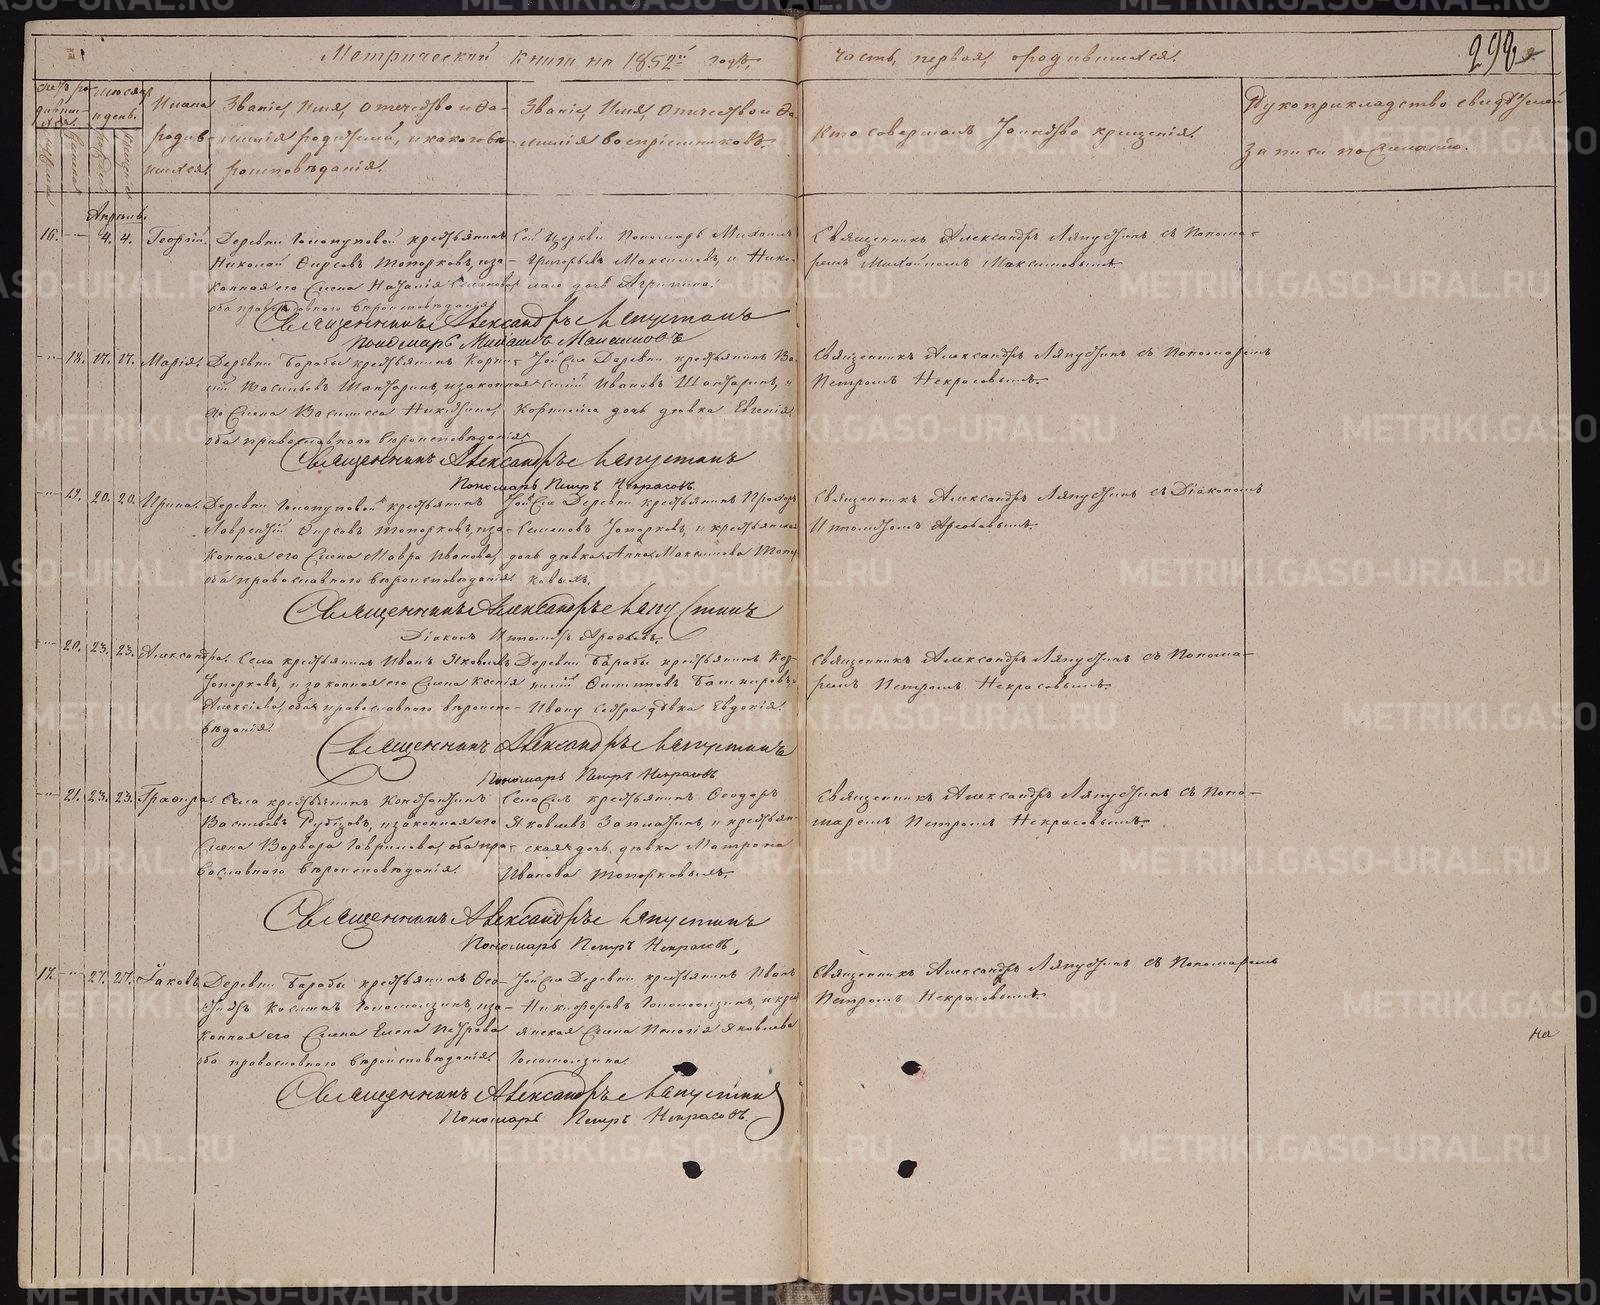 Метрической книги на 1852й годъ,
часть первая, о родившихся.
298
Мѣсяцъ и день.
Имена родив-
шихся.
Званіе, Имя, Отечество и Фа-
милія родителей, и какого вѣ-
роисповѣданія.
Званіе, Имя, Отчество и Фа-
милія воспріемниковъ.
Кто совершалъ Таинство крещенія.
Рукоприкладство свидѣтелей
записи по желанію.
Апрѣль.
16. 4. 4. Георгій.
Деревни крестьянинъ
Николай Ѳирсовъ Топорковъ, и за-
конная его жена Наталія
оба православнаго вѣроисповѣданія.
Сей Церкви Пономарь Михаилъ
Григорьевъ Максимовъ, и Нико-
лаю дочь Агрипина.
Священникъ Александръ Ляпустинъ съ Понома-
ремъ Михайломъ Максимовымъ.
Священникъ Александръ Ляпустинъ
Пономарь Михаилъ Максимовъ
18. 17. 17. Марія.
Деревни Барабы крестьянинъ Корни-
лій Васильевъ и законная
его жена Василисса Никитина,
оба православнаго вѣроисповѣданія.
Той же Деревни крестьянинъ Ва-
силій Ивановъ и
Корнилія дочь дѣвка Евгенія.
Священникъ Александръ Ляпустинъ съ Пономаремъ
Петромъ Некрасовымъ.
Священникъ Александръ Ляпустинъ
Пономарь Петръ Некрасовъ.
19. 20. 20. Ирина.
Деревни крестьянинъ
Лаврентій Ѳирсовъ Топорковъ, и за-
конная его жена Мавра Иванова,
оба православнаго вѣроисповѣданія.
Той же Деревни крестьянинъ Прохоръ
Семеновъ Топорковъ, и крестьянская
дочь дѣвка Анна Максимова Топор-
ковыхъ.
Священникъ Александръ Ляпустинъ съ Діакономъ
Ипполитомъ
Священникъ Александръ Ляпустинъ
Діаконъ Ипполитъ
20. 23. 23. Александра.
Села крестьянинъ Иванъ Яковлевъ
Топорковъ, и законная его жена Ксенія
Алексѣева, оба православнаго вѣроиспо-
вѣданія.
Деревни Барабы крестьянинъ Кор-
нилій Башкировъ,
Ивану сестра дѣвка Евдокія.
Священникъ Александръ Ляпустинъ съ Понома-
ремъ Петромъ Некрасовымъ.
Священникъ Александръ Ляпустинъ
Пономарь Петръ Некрасовъ
21. 23. 23. Глафира.
Села крестьянинъ Константинъ
Васильевъ и законная его
жена Варвара Гаврилова, оба пра-
вославнаго вѣроисповѣданія.
Села сего крестьянинъ Ѳеодоръ
Яковлевъ Заплатинъ, и крестьян-
ская дочь дѣвка Матрона
Иванова Топорковыхъ.
Священникъ Александръ Ляпустинъ съ Поно-
маремъ Петромъ Некрасовымъ.
Священникъ Александръ Ляпустинъ
Пономарь Петръ Некрасовъ,
17. 27. 27. Іаковъ.
Деревни Барабы крестьянинъ
Голомолзинъ, и за-
конная его жена Елена Петрова
оба православнаго вѣроисповѣданія.
Той же Деревни крестьянинъ Иванъ
Никифоровъ Голомолзинъ и крес-
янская жена Пелагія Яковлева
Голомолзина.
Священникъ Александръ Ляпустинъ съ Пономаремъ
Петромъ Некрасовымъ.
Священникъ Александръ Ляпустинъ
Пономарь Петръ Некрасовъ
На
METRIKI.GASO-URAL.RU